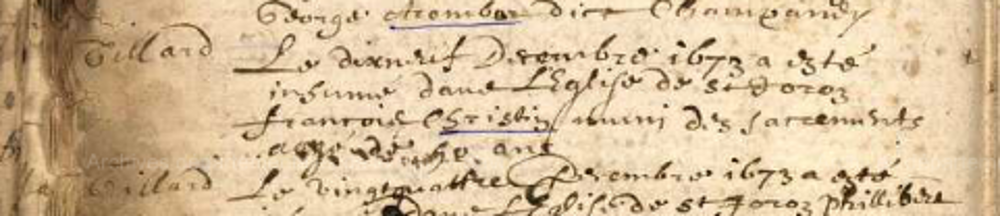 George dict Champandy
Villard Le dixneuf Decembre 1673 a esté
inhumé dans L'Eglise de St Joroz
francois Christin muni des sacrements
aagé de ans
Villard Le vingtquattre Decembre 1673 a esté
dans L'Eglise de St Joroz Phillibert